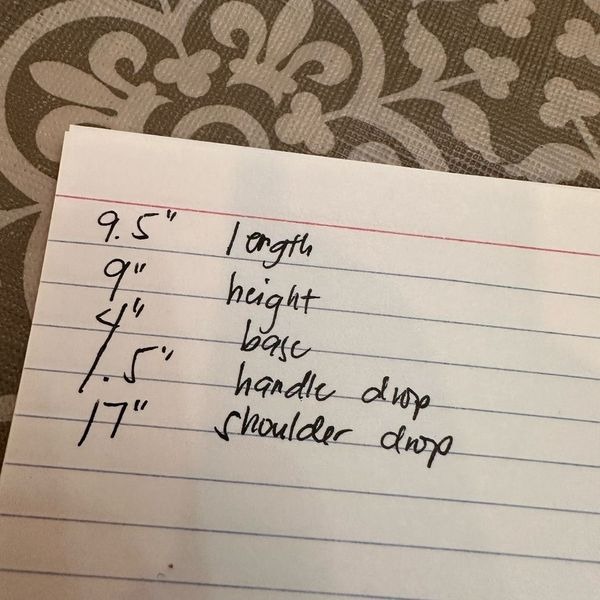 9.5" length
9" height
4" base
1.5" handle drop
17" shoulder drop